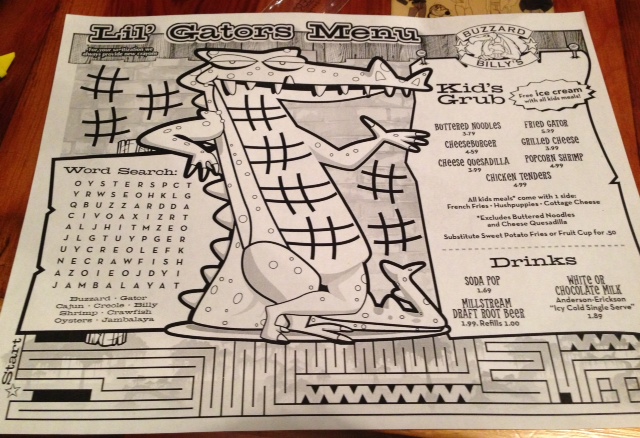 Lil' Gators Menu
For your sertization we
always provide new crayons
BUZZARD
BILLY'S
Kid's
Grub
Free ice cream
with all kids meals!
BUTTERED NOODLES
3.79
FRIED GATOR
5.29
CHEESEBORGER
4.59
GRILLED CHEESE
3.99
CHEESE QUESADILLA
3.99
POPCORN SHRIMP
4.99
CHICKEN TENDERS
4.99
All kids meals* come with 1 side:
French Fries · Hushpuppies · Cottage Cheese
*Excludes Buttered Noodles
and Cheese Quesadilla
Substitute Sweet Potato Fries or Fruit Cup for .50
Drinks
SODA POP
1.69
MILLSTREAM
DRAFT ROOT BEER
1.99. Refills 1.00
WHITE OR
CHOCOLATE MILK
Anderson-Erickson
"Icy Cold Single Serve"
1.89
Word Search:
O Y S T E R S P C T
Y R W S E O H K L G
Q B U Z Z A R D D A
C I V O A X I Z R T
A L J H I T M Z E O
J L G T U Y P G E R
U Y C R E O L E F K
N E C R A W F I S H
A Z O I E O J D Y I
J A M B A L A Y A T
Buzzard · Gator
Cajun · Creole · Billy
Shrimp · Crawfish
Oysters · Jambalaya
Start